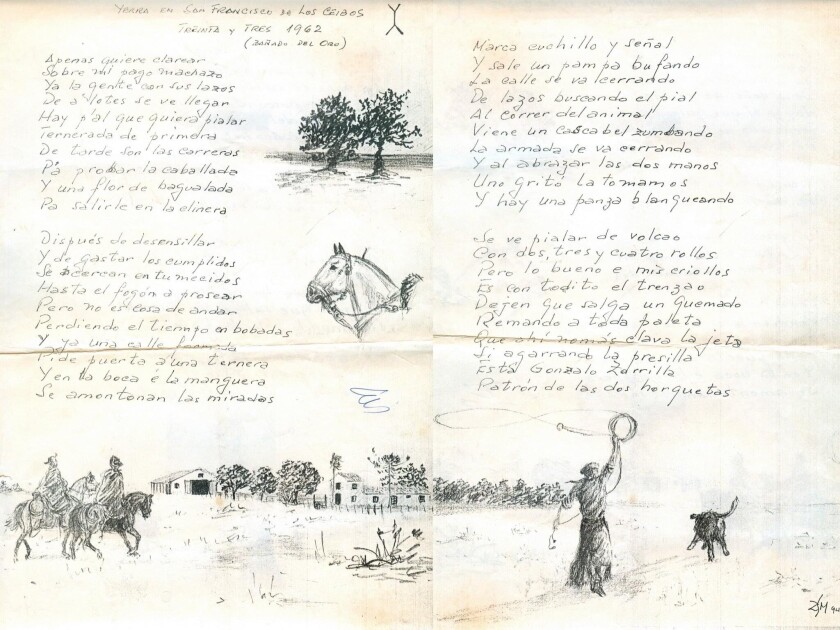 Yerra en San Francisco de Los Ceibos
Treinta y Tres 1962
(Bañado del Oro)
Apenas quiere clarear
Sobre mi pago machazo
Ya la gente con sus lazos
De a lotes se ve llegar
Hay p'al que quiera pialar
Ternerada de primera
De tarde son las carreras
Pa probar la caballada
Y una flor de bagualada
Pa salirle en la clinera
Dispués de desensillar
Y de gastar los cumplidos
Se acercan entumecidos
Hasta el fogón a prosear
Pero no es cosa de andar
Perdiendo el tiempo en bobadas
Y ya una calle formada
Pide puerta a una ternera
Y en la boca e la manguera
Se amontonan las miradas
Marca cuchillo y señal
Y sale un pampa bufando
La calle se va cerrando
De lazos buscando el pial
Al correr del animal
Viene un cascabel zumbando
La armada se va cerrando
Y al abrazar las dos manos
Uno gritó la tomamos
Y hay una panza blanqueando
Se ve pialar de volcao
Con dos, tres y cuatro rollos
Pero lo bueno e mis criollos
Es con todito el trenzao
Dejen que salga un quemado
Remando a toda paleta
Que ahí nomás clava la jeta
Si agarrando la presilla
Está Gonzalo Zorrilla
Patrón de las dos horquetas
94